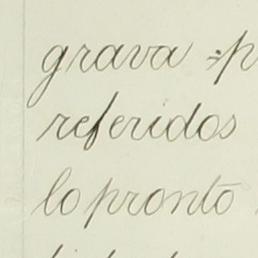 grava
referidos
lo pronto